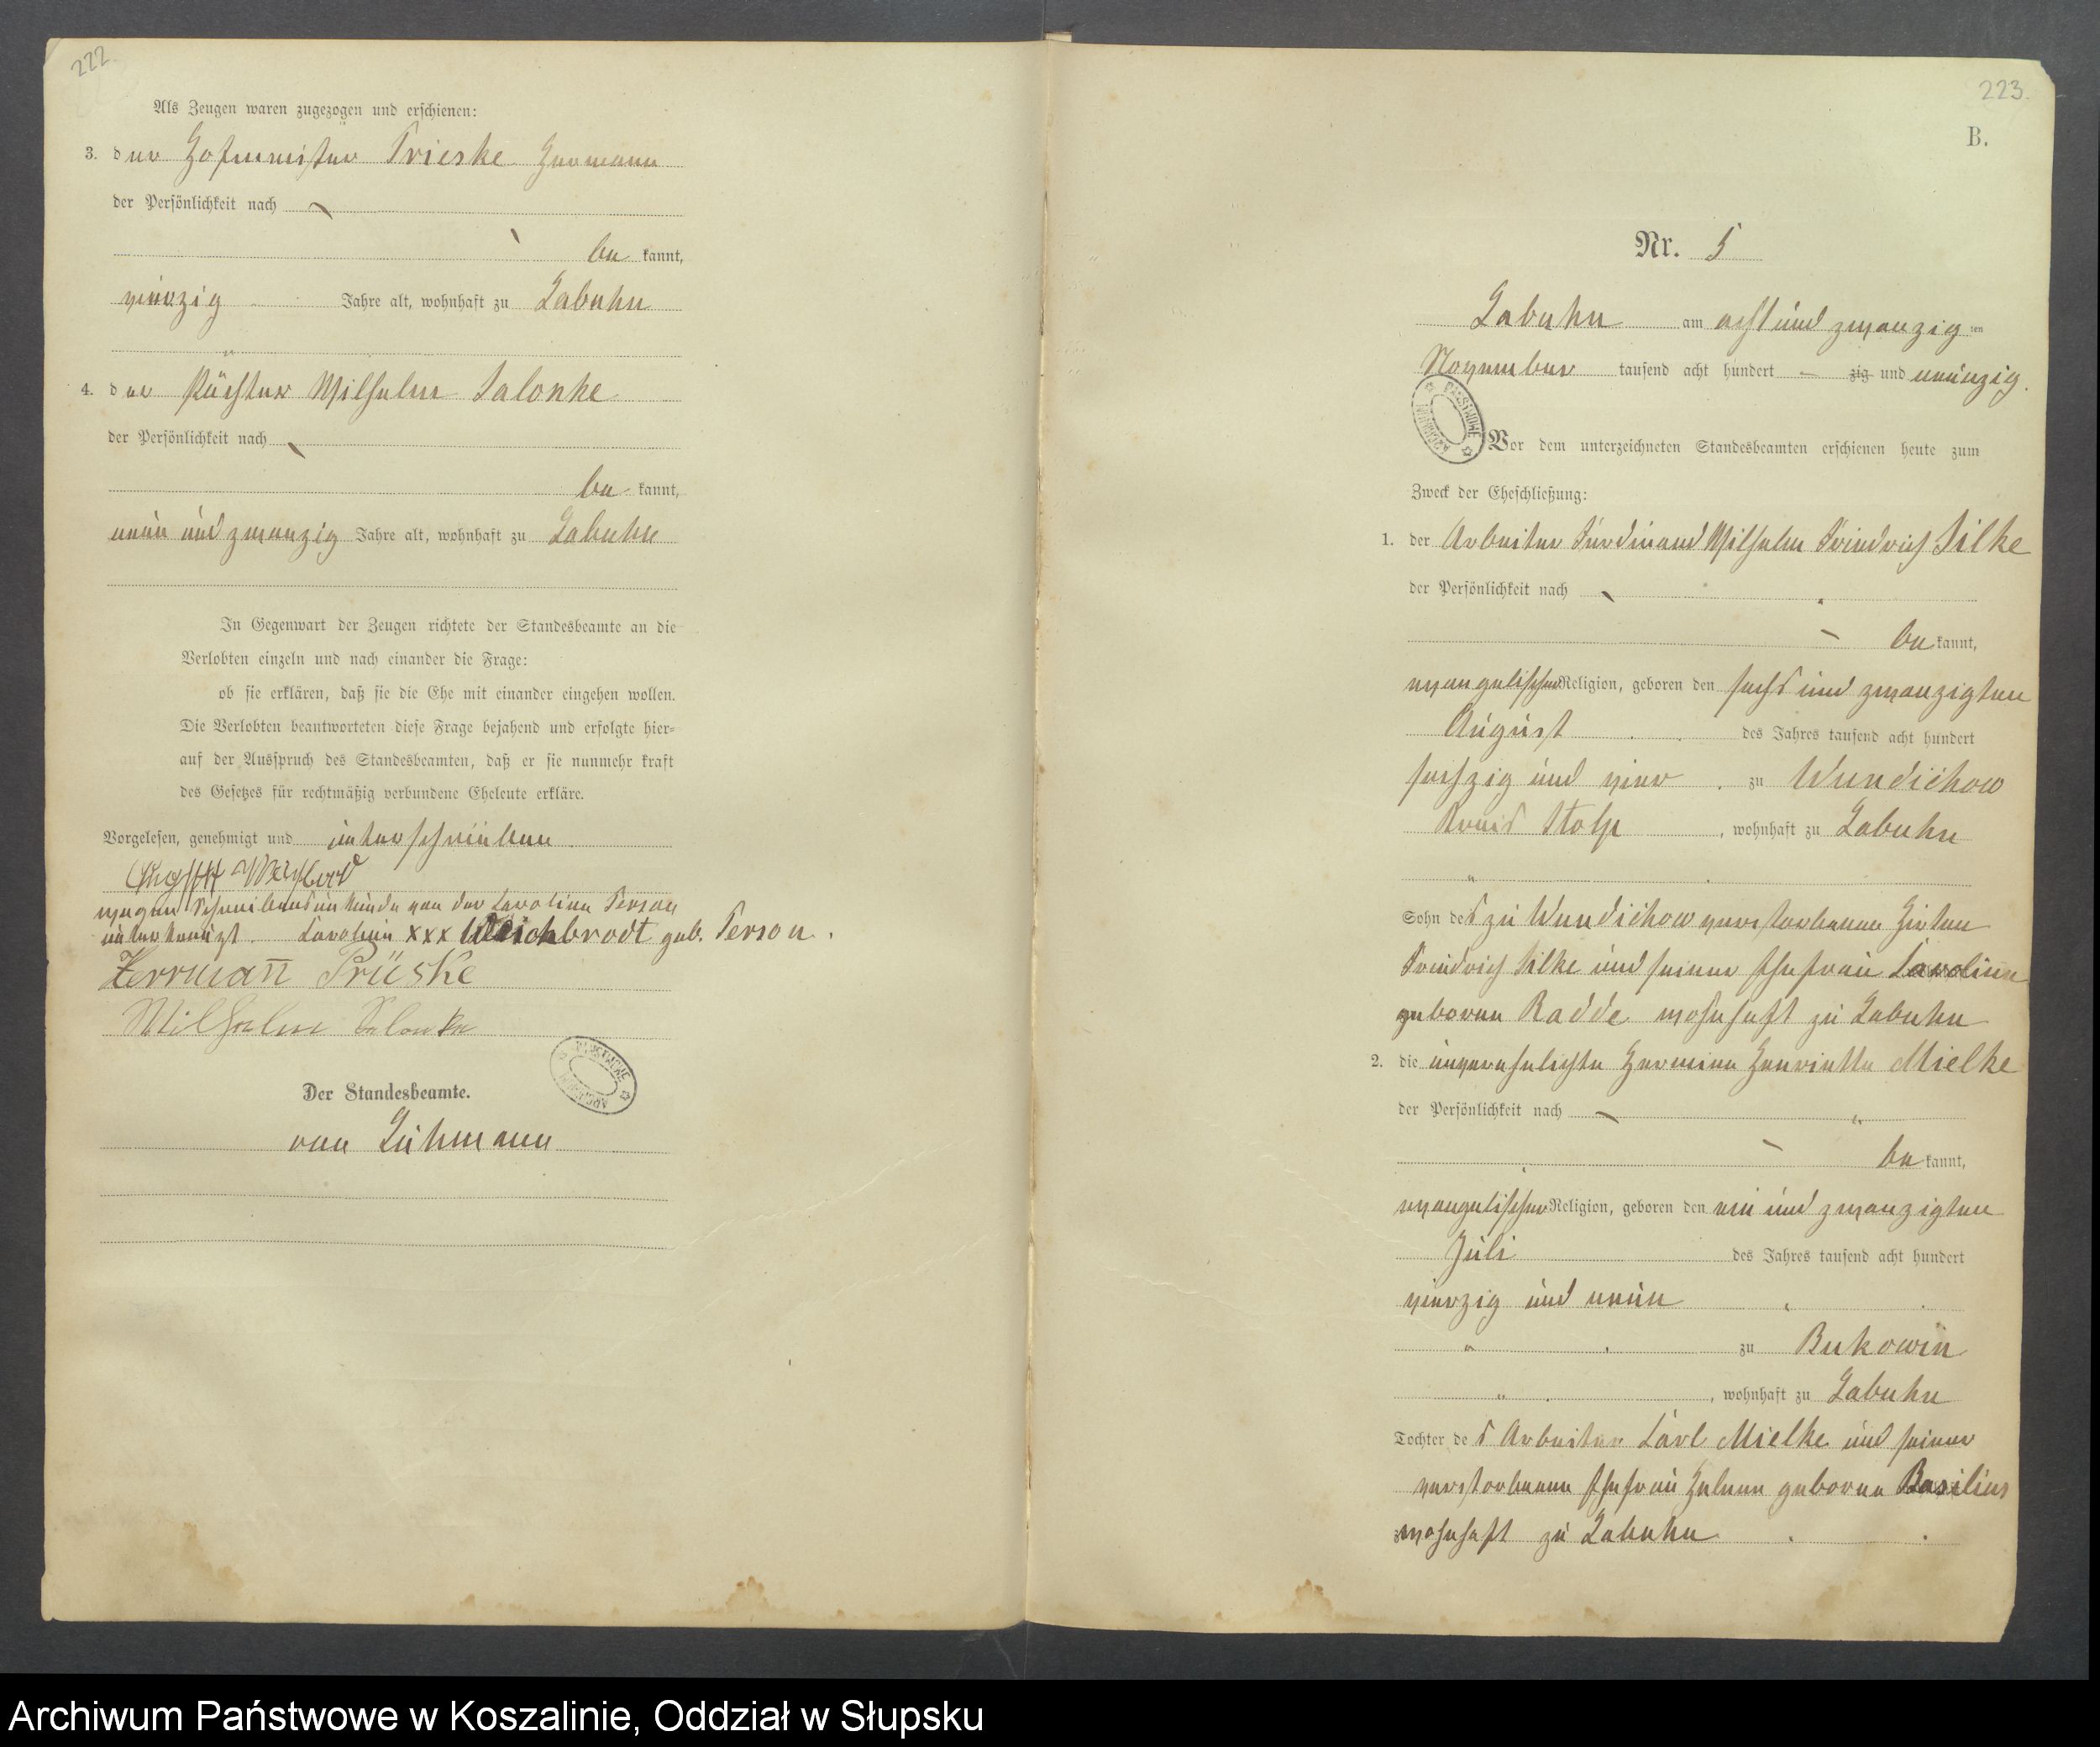 222.
Als Zeugen waren zugezogen und erschienen:
3. der Hofmeister Prieske Hermann
der Persönlichkeit nach
be kannt,
vierzig Jahre alt, wohnhaft zu Labuhn
4. der Wilhelm Salonke
der Persönlichkeit nach
be kannt,
neun und zwanzig Jahre alt, wohnhaft zu Labuhn
In Gegenwart der Zeugen richtete der Standesbeamte an die
Verlobten einzeln und nach einander die Frage:
ob sie erklären, daß sie die Ehe mit einander eingehen wollen.
Die Verlobten beantworteten diese Frage bejahend und erfolgte hier-
auf der Ausspruch des Standesbeamten, daß er sie nunmehr kraft
des Gesetzes für rechtmäßig verbundene Eheleute erkläre.
Vorgelesen, genehmigt und unterschrieben
wegen Schreibensunkunde von der Caroline Person
unterkreuzt. Caroline xxx Weichbrodt geb. Person.
Herrmann Prüske
Wilhelm Salonke
Der Standesbeamte.
von Lühmann
223.
B.
Nr. 5
Labuhn am acht und zwanzig ten
November tausend acht hundert zig und neunzig.
Vor dem unterzeichneten Standesbeamten erschienen heute zum
Zweck der Eheschließung:
1. der Arbeiter Ferdinand Wilhelm Friedrich Silke
der Persönlichkeit nach
be kannt,
evangelischer Religion, geboren den sechs und zwanzigten
August des Jahres tausend acht hundert
sechzig und vier zu Wundichow
Kreis Stolp, wohnhaft zu Labuhn
Sohn des zu Wundichow verstorbenen Hirten
Friedrich Silke und seiner Ehefrau Caroline
geborene Radde wohnhaft zu Labuhn
2. die unverehelichte Hermine Henriette Mielke
der Persönlichkeit nach
be kannt,
evangelischer Religion, geboren den ein und zwanzigten
Juli des Jahres tausend acht hundert
vierzig und neun
zu Bukowin
, wohnhaft zu Labuhn
Tochter des Arbeiter Carl Mielke und seiner
verstorbenen Ehefrau Helene geborene Basilius
wohnhaft zu Labuhn
Archiwum Państwowe w Koszalinie, Oddział w Słupsku